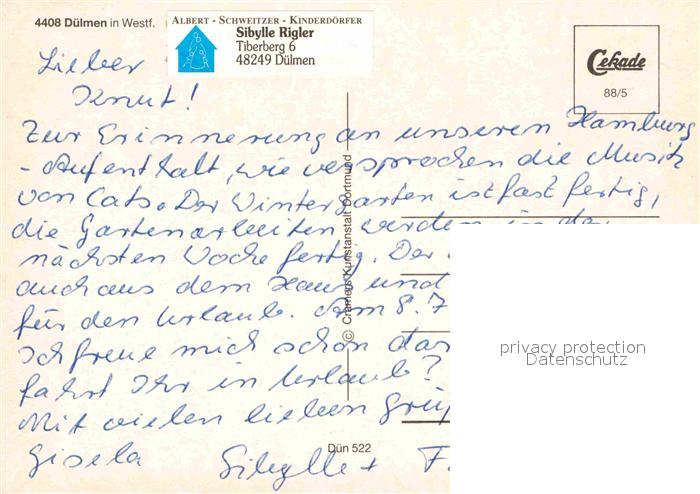 4408 Dülmen in Westf.
ALBERT - SCHWEITZER - KINDERDÖRFER
Sibylle Rigler
Tiberberg 6
48249 Dülmen
Cekade
88/5
Lieber
Knut!
Zur Erinnerung an unseren Hamburg
-Aufenthalt, wie versprochen die Musik
von Cats. Der Wintergarten ist fast fertig,
die Gartenarbeiten werden in der
nächsten Woche fertig. Der
auch aus dem Haus und
für den Urlaub. Am 8.7
Ich freue mich schon
fahrt Ihr in Urlaub?
Mit vielen lieben
Gisela Sibylle + F.
© Cramers Kunstanstalt Dortmund
Dün 522
privacy protection
Datenschutz